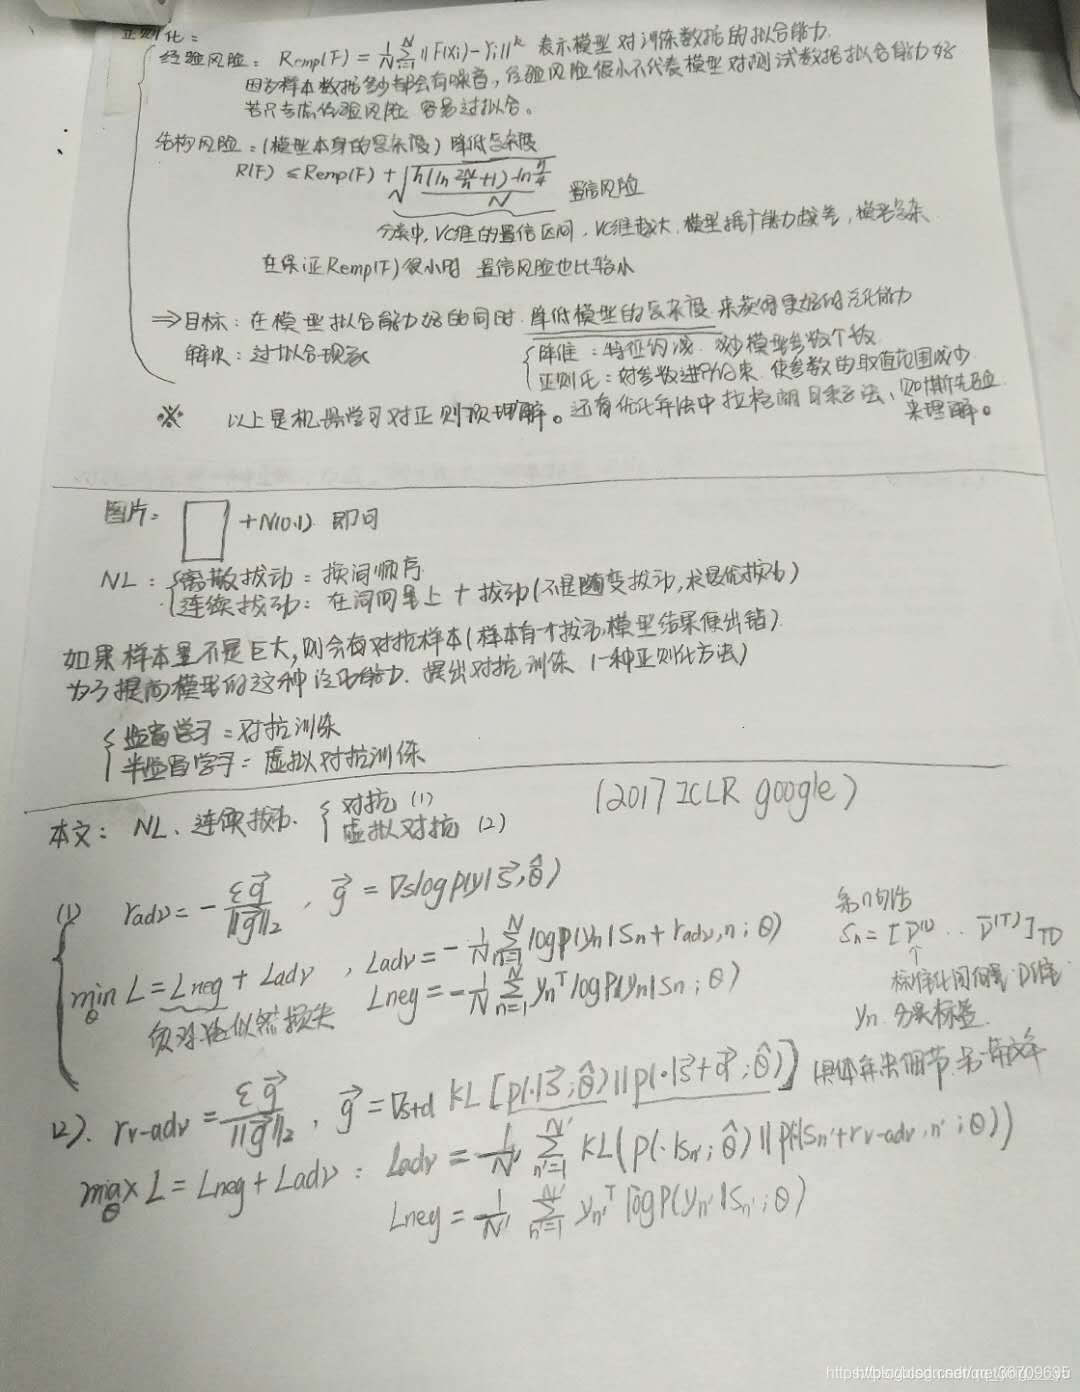 正则化：
经验风险：Remp(F) = 1/N Σ_{i=1}^{N} ||F(Xi)-Yi||^k 表示模型对训练数据的拟合能力
因为样本数据多少都会有噪音，经验风险很小不代表模型对测试数据拟合能力好
若只考虑经验风险 容易过拟合。
结构风险：(模型本身的复杂度) 降低复杂度
R(F) ≤ Remp(F) + √(h(ln 2N/h +1) - ln η/4 / N) 置信风险
分类中，VC维的置信区间，VC维越大，模型推广能力越差，模型复杂
在保证Remp(F)很小时 置信风险也比较小
⇒目标：在模型拟合能力好的同时，降低模型的复杂度 来获得更好的泛化能力
解决：过拟合现象
降维：特征约减，减少模型参数个数
正则化：对参数进行约束，使参数的取值范围减少
※ 以上是机器学习对正则项理解。还有优化算法中拉格朗日乘子法、贝叶斯先验
来理解。
图片： +N(0,1) 即可
NL：离散扰动：换词顺序
连续扰动：在词向量上+扰动(不是随便扰动,求最优扰动)
如果样本量不是巨大,则会有对抗样本(样本有一个扰动,模型结果便出错)
为了提高模型的这种泛化能力，提出对抗训练 (一种正则化方法)
监督学习：对抗训练
半监督学习：虚拟对抗训练
(2017 ICLR google)
本文： NL、连续扰动、 对抗 (1)
虚拟对抗 (2)
(1) r_adv = - εg⃗/||g⃗||₂ , g⃗ = ∇s log p(y|s⃗,θ̂)
min_θ L = Lneg + Ladv , Ladv = -1/N Σ_{n=1}^{N} log p(yn|Sn + radv,n ; θ)
负对数似然损失 Lneg = -1/N Σ_{n=1}^{N} yn^T log P(yn|Sn ; θ)
Sn = [v̄^(1) .. v̄^(T)]TD
标准化词向量·D维
yn 分类标签
(2). r_v-adv = εg⃗/||g⃗||₂ , g⃗ = ∇s+d KL[p(·|s⃗;θ̂)||p(·|s⃗+d⃗;θ̂)] 具体算法细节
max_θ L = Lneg + Ladv : Ladv = -1/N' Σ_{n'=1}^{N'} KL(p(·|sn';θ̂)||p(·|sn'+rv-adv,n';θ))
Lneg = -1/N' Σ_{n'=1}^{N'} yn'^T log P(yn'|Sn';θ)